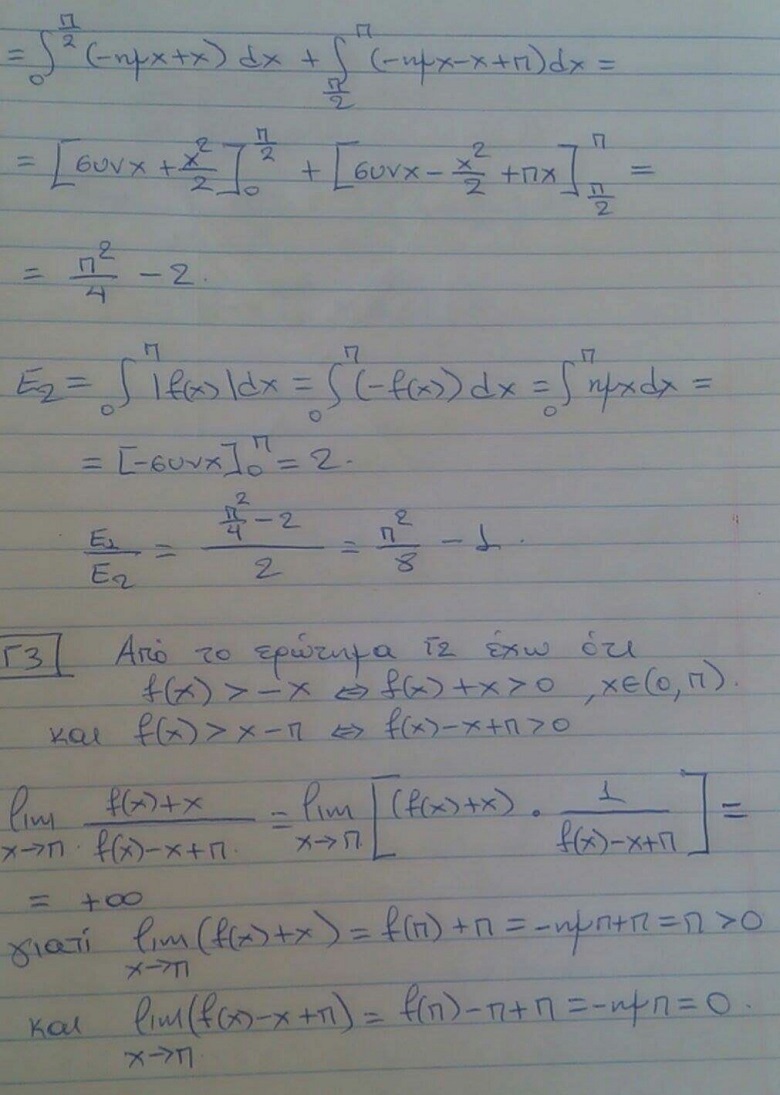 = ∫₀^{π/2} (-ημx+x) dx + ∫_{π/2}^{π} (-ημx-x+π)dx =
= [συνx + x²/2]₀^{π/2} + [συνx - x²/2 + πx]_{π/2}^{π} =
= π²/4 - 2.
E₂ = ∫₀^π |f(x)|dx = ∫₀^π (-f(x)) dx = ∫₀^π ημxdx =
= [-συνx]₀^π = 2.
E₁/E₂ = (π²/4 - 2)/2 = π²/8 - 1.
Γ3 Από το ερώτημα Γ2 έχω ότι
f(x) > -x ⇔ f(x)+x>0 , x∈(0,π).
και f(x)>x-π ⇔ f(x)-x+π>0
lim_{x→π} (f(x)+x)/(f(x)-x+π) = lim_{x→π} [(f(x)+x) · 1/(f(x)-x+π)] =
= +∞
γιατί lim_{x→π} (f(x)+x) = f(π)+π = -ημπ+π = π >0
και lim_{x→π} (f(x)-x+π) = f(π)-π+π = -ημπ = 0.